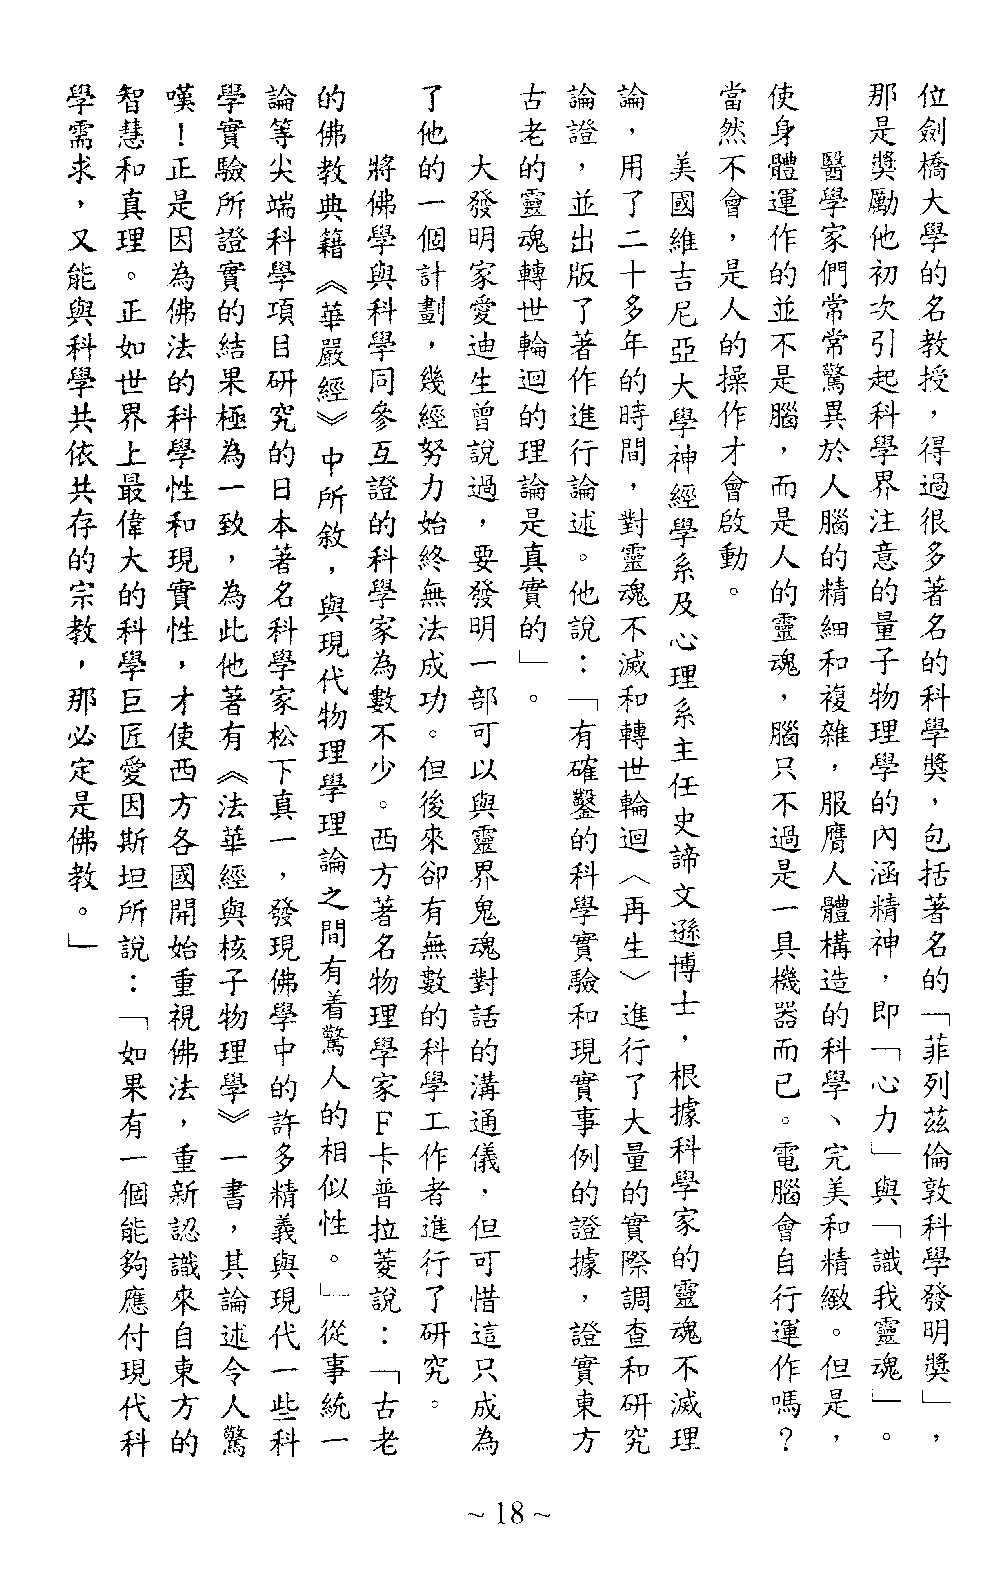 位劍橋大學的名教授，得過很多著名的科學獎，包括著名的「菲列茲倫敦科學發明獎」，
那是獎勵他初次引起科學界注意的量子物理學的內涵精神，即「心力」與「識我靈魂」。
醫學家們常常驚異於人腦的精細和複雜，服膺人體構造的科學、完美和精緻。但是，
使身體運作的並不是腦，而是人的靈魂，腦只不過是一具機器而已。電腦會自行運作嗎？
當然不會，是人的操作才會啟動。
美國維吉尼亞大學神經學系及心理系主任史諦文遜博士，根據科學家的靈魂不滅理
論，用了二十多年的時間，對靈魂不滅和轉世輪迴〈再生〉進行了大量的實際調查和研究
論證，並出版了著作進行論述。他說：「有確鑿的科學實驗和現實事例的證據，證實東方
古老的靈魂轉世輪迴的理論是真實的」。
大發明家愛迪生曾說過，要發明一部可以與靈界鬼魂對話的溝通儀，但可惜這只成為
了他的一個計劃，幾經努力始終無法成功。但後來卻有無數的科學工作者進行了研究。
將佛學與科學同參互證的科學家為數不少。西方著名物理學家F卡普拉菱說：「古老
的佛教典籍《華嚴經》中所敘，與現代物理學理論之間有着驚人的相似性。」從事統一
論等尖端科學項目研究的日本著名科學家松下真一，發現佛學中的許多精義與現代一些科
學實驗所證實的結果極為一致，為此他著有《法華經與核子物理學》一書，其論述令人驚
嘆！正是因為佛法的科學性和現實性，才使西方各國開始重視佛法，重新認識來自東方的
智慧和真理。正如世界上最偉大的科學巨匠愛因斯坦所說：「如果有一個能夠應付現代科
學需求，又能與科學共依共存的宗教，那必定是佛教。」
~18~